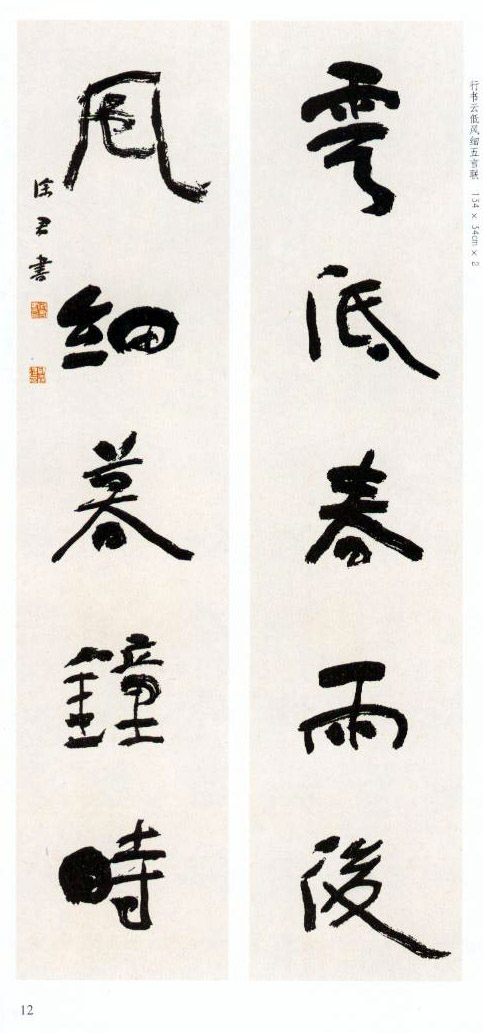 行书云低风细五言联 134×34cm×2
雲低春雨後
風細暮鐘時
徐君書
12